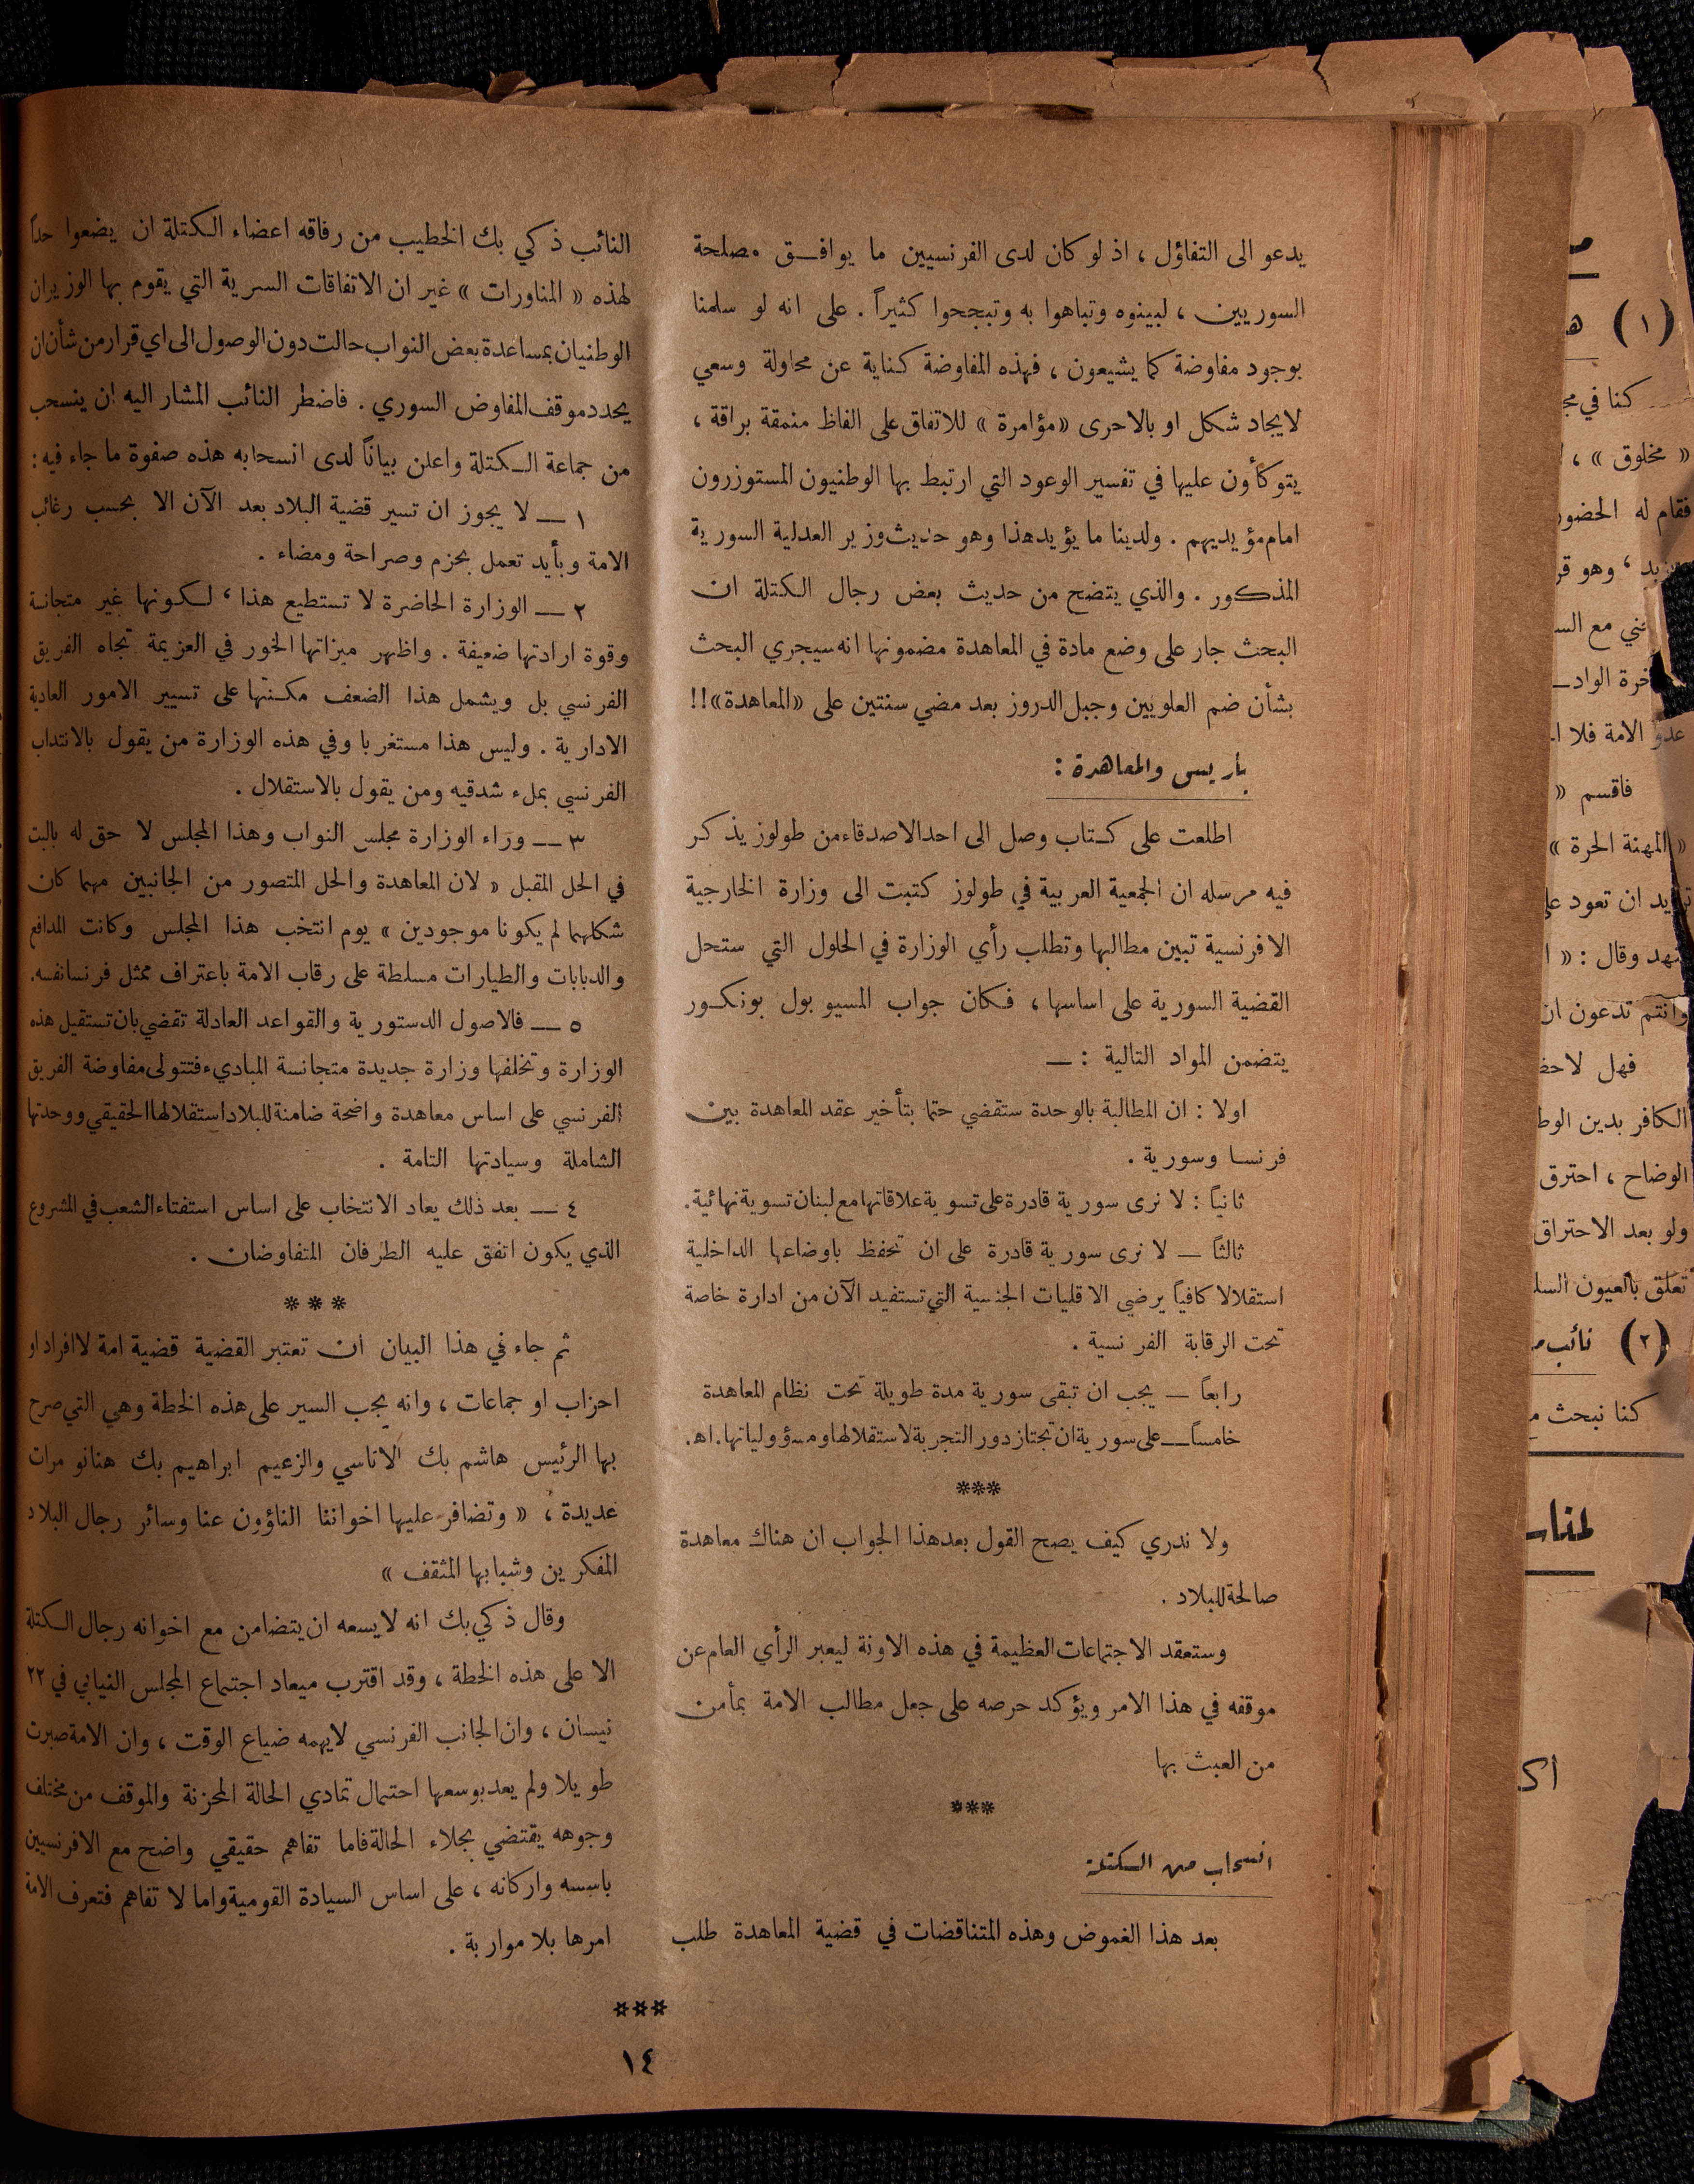 يدعو الى التفاؤل ، اذ لو كان لدى الفرنسيين ما يوافـق مصلحة
السوريين ، لبينوه وتباهوا به وتبجحوا كثيراً . على انه لو سلمنا
بوجود مفاوضة كما يشيعون ، فهذه المفاوضة كناية عن محاولة وسعي
لايجاد شكل او بالاحرى «مؤامرة» للاتفاق على الفاظ منمقة براقة ،
يتوكأون عليها في تفسير الوعود التي ارتبط بها الوطنيون المستوزرون
امام مؤيديهم . ولدينا ما يؤيد هذا وهو حديث وزير العدلية السورية
المذكور . والذي يتضح من حديث بعض رجال الكتلة ان
البحث جار على وضع مادة في المعاهدة مضمونها انه سيجري البحث
بشأن ضم العلويين وجبل الدروز بعد مضي سنتين على «المعاهدة»!!
باريس والمعاهدة :
اطلعت على كـتاب وصل الى احد الاصدقاء من طولوز يذكر
فيه مرسله ان الجمعية العربية في طولوز كتبت الى وزارة الخارجية
الافرنسية تبين مطالبها وتطلب رأي الوزارة في الحلول التي ستحل
القضية السورية على اساسها ، فـكان جواب المسيو بول بونكـور
يتضمن المواد التالية : —
اولا : ان المطالبة بالوحدة ستقضي حتما بتأخير عقد المعاهدة بين
فرنسا وسورية .
ثانياً : لا نرى سورية قادرة على تسوية علاقاتها مع لبنان تسوية نهائية .
ثالثاً — لا نرى سورية قادرة على ان تحفظ باوضاعها الداخلية
استقلالا كافياً يرضي الاقليات الجنسية التي تستفيد الآن من ادارة خاصة
تحت الرقابة الفرنسية .
رابعاً — يجب ان تبقى سورية مدة طويلة تحت نظام المعاهدة
خامساً — على سورية ان تجتاز دور التجربة لاستقلالها ومسؤولياتها . اهـ .
***
ولا ندري كيف يصح القول بعد هذا الجواب ان هناك معاهدة
صالحة للبلاد .
وستعقد الاجتماعات العظيمة في هذه الاونة ليعبر الرأي العام عن
موقفه في هذا الامر ويؤكد حرصه على جعل مطالب الامة بمأمن
من العبث بها
***
انسحاب من الـكتلة
بعد هذا الغموض وهذه المتناقضات في قضية المعاهدة طلب
النائب ذكي بك الخطيب من رفاقه اعضاء الـكتلة ان يضعوا حداً
لهذه « المناورات » غير ان الاتفاقات السرية التي يقوم بها الوزيران
الوطنيان بمساعدة بعض النواب حالت دون الوصول الى اي قرار من شأن ان
يحدد موقف المفاوض السوري . فاضطر النائب المشار اليه ان ينسحب
من جماعة الـكتلة واعلن بياناً لدى انسحابه هذه صفوة ما جاء فيه :
١ — لا يجوز ان تسير قضية البلاد بعد الآن الا بحسب رغائب
الامة وبأيد تعمل بحزم وصراحة ومضاء .
٢ — الوزارة الحاضرة لا تستطيع هذا ، لـكونها غير متجانسة
وقوة ارادتها ضعيفة . واظهر ميزاتها الخور في العزيمة تجاه الفريق
الفرنسي بل ويشمل هذا الضعف مكـنتها على تسيير الامور العادية
الادارية . وليس هذا مستغربا وفي هذه الوزارة من يقول بالانتداب
الفرنسي بملء شدقيه ومن يقول بالاستقلال .
٣ — وراء الوزارة مجلس النواب وهذا المجلس لا حق له بالبت
في الحل المقبل « لان المعاهدة والحل المتصور من الجانبين مهما كان
شكلهما لم يكونا موجودين » يوم انتخب هذا المجلس وكانت المدافع
والدبابات والطيارات مسلطة على رقاب الامة باعتراف ممثل فرنسا نفسه .
٥ — فالاصول الدستورية والقواعد العادلة تقضي بان تستقيل هذه
الوزارة وتخلفها وزارة جديدة متجانسة المباديء فتتولى مفاوضة الفريق
الفرنسي على اساس معاهدة واضحة ضامنة للبلاد استقلالها الحقيقي ووحدتها
الشاملة وسيادتها التامة .
٤ — بعد ذلك يعاد الانتخاب على اساس استفتاء الشعب في المشروع
الذي يكون اتفق عليه الطرفان المتفاوضان .
***
ثم جاء في هذا البيان ان تعتبر القضية قضية امة لا افراد او
احزاب او جماعات ، وانه يجب السير على هذه الخطة وهي التي صرح
بها الرئيس هاشم بك الاتاسي والزعيم ابراهيم بك هنانو مرات
عديدة ، « وتضافر عليها اخواننا الناؤون عنا وسائر رجال البلاد
المفكرين وشبابها المثقف »
وقال ذكي بك انه لا يسعه ان يتضامن مع اخوانه رجال الـكتلة
الا على هذه الخطة ، وقد اقترب ميعاد اجتماع المجلس النيابي في ٢٢
نيسان ، وان الجانب الفرنسي لا يهمه ضياع الوقت ، وان الامة صبرت
طويلا ولم يعد بوسعها احتمال تمادي الحالة المحزنة والموقف من مختلف
وجوهه يقتضي بجلاء الحالة فاما تفاهم حقيقي واضح مع الافرنسيين
باسسه واركانه ، على اساس السيادة القومية واما لا تفاهم فتعرف الامة
امرها بلا مواربة .
***
١٤
(١)
كنا في
« مخلوق » ،
فقام له الحضور
، وهو
مع
عدو الامة فلا
فاقسم «
« المهنة الحرة »
ان تعود
وقال : «
وانتم تدعون ان
فهل
الكافر بدين
الوضاح ، احترق
ولو بعد الاحتراق
تعلق بالعيون
(٢) نائب
كنا نبحث